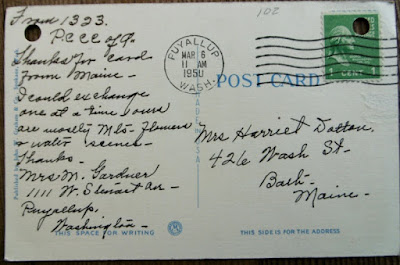 From 1323.
P.C.C.C of A.
Thanks for card
from Maine -
I could exchange
one at a time ours
are mostly Mts- Flowers
& water scenes-
Thanks-
Mrs M. Gardner
1111 W. Stewart Av-
Puyallup,
Washington -
THIS SPACE FOR WRITING
102
PUYALLUP
MAR 6
11 AM
1950
WASH.
1 CENT 1
POST CARD
MADE IN USA
Mrs Harriet Dalton,
426 Wash St-
Bath-
Maine-
THIS SIDE IS FOR THE ADDRESS